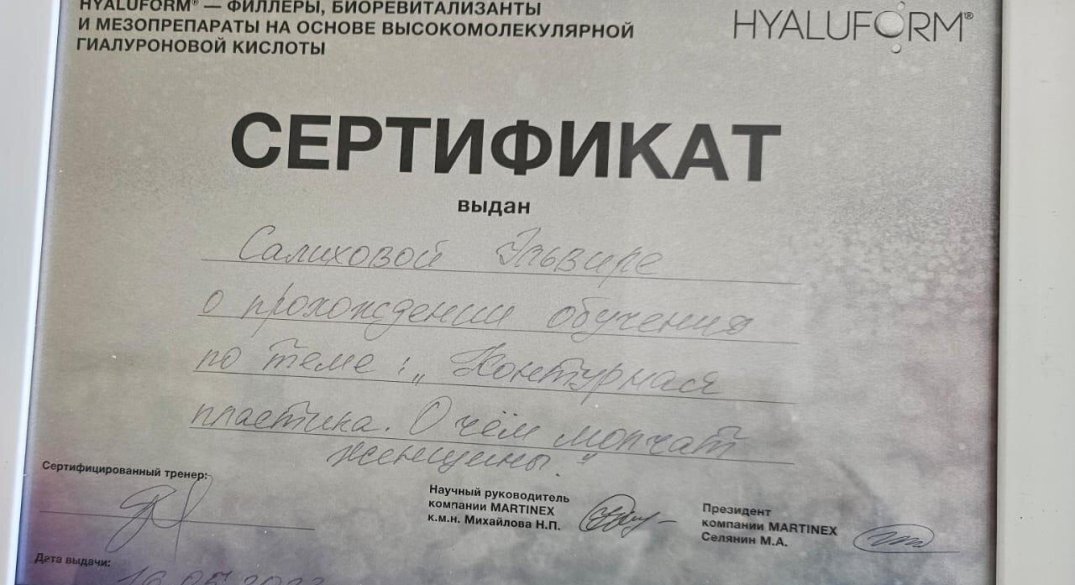 HYALUFORM® — ФИЛЛЕРЫ, БИОРЕВИТАЛИЗАНТЫ
И МЕЗОПРЕПАРАТЫ НА ОСНОВЕ ВЫСОКОМОЛЕКУЛЯРНОЙ
ГИАЛУРОНОВОЙ КИСЛОТЫ
HYALUFORM®
СЕРТИФИКАТ
выдан
Салиховой Эльвире
о прохождении обучения
по теме: „Контурная
пластика. О чём молчат
женщины."
Сертифицированный тренер:
Научный руководитель
компании MARTINEX
к.м.н. Михайлова Н.П.
Президент
компании MARTINEX
Селянин М.А.
Дата выдачи: